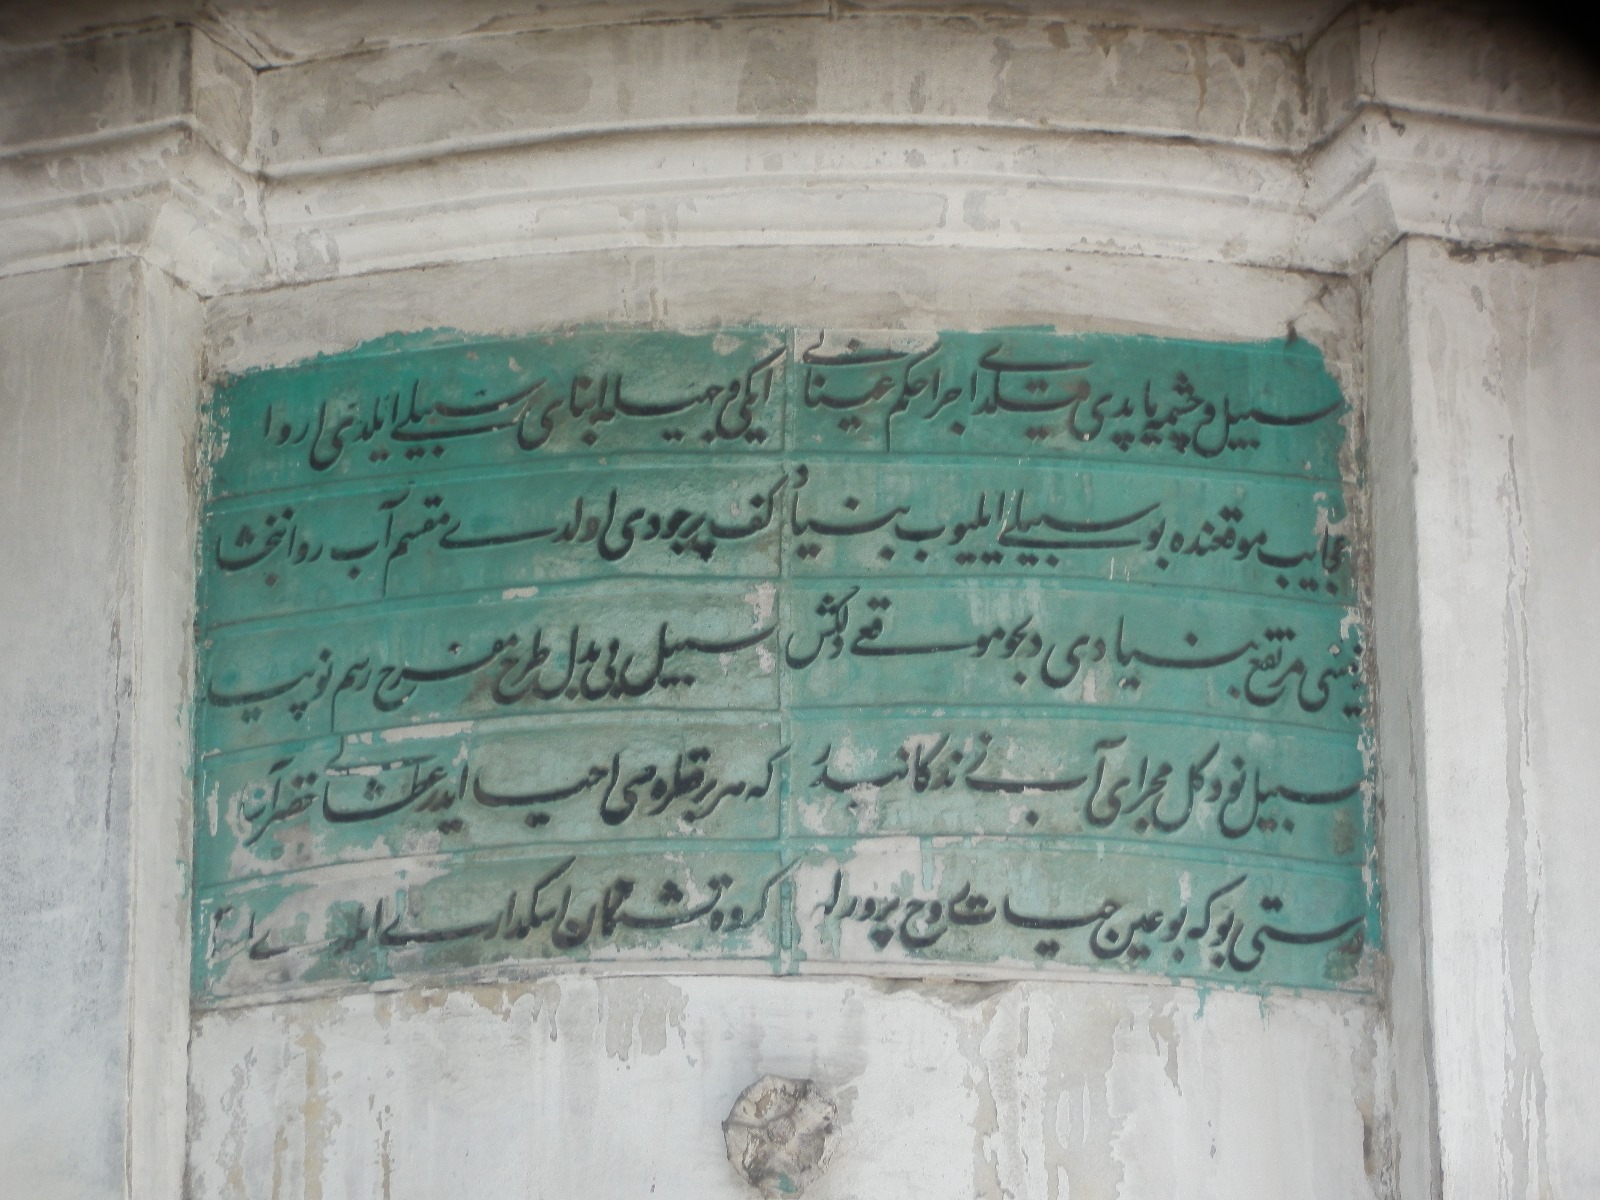 سبیل و چشمه یاپدی قیلدی اجرا حکم عینانی
ایکی وجهیله ابنای سبیلی ایلدی اروا
عجایب موقعنده بو سبیلی ایلیوب بنیاد
کف پر جودی اولدی مقسم آب روانبخشا
مرتفع بنیادی دلجو موقعی دلکش
سبیل بی بدل طرح مفرح رسم نو پیدا
سبیل نو دکل مجرای آب زندکانیدر
که هر بر قطره سی احیا ایدر عطشانی
بو که بو عین حیات روح پرورله
کروه تشنکان